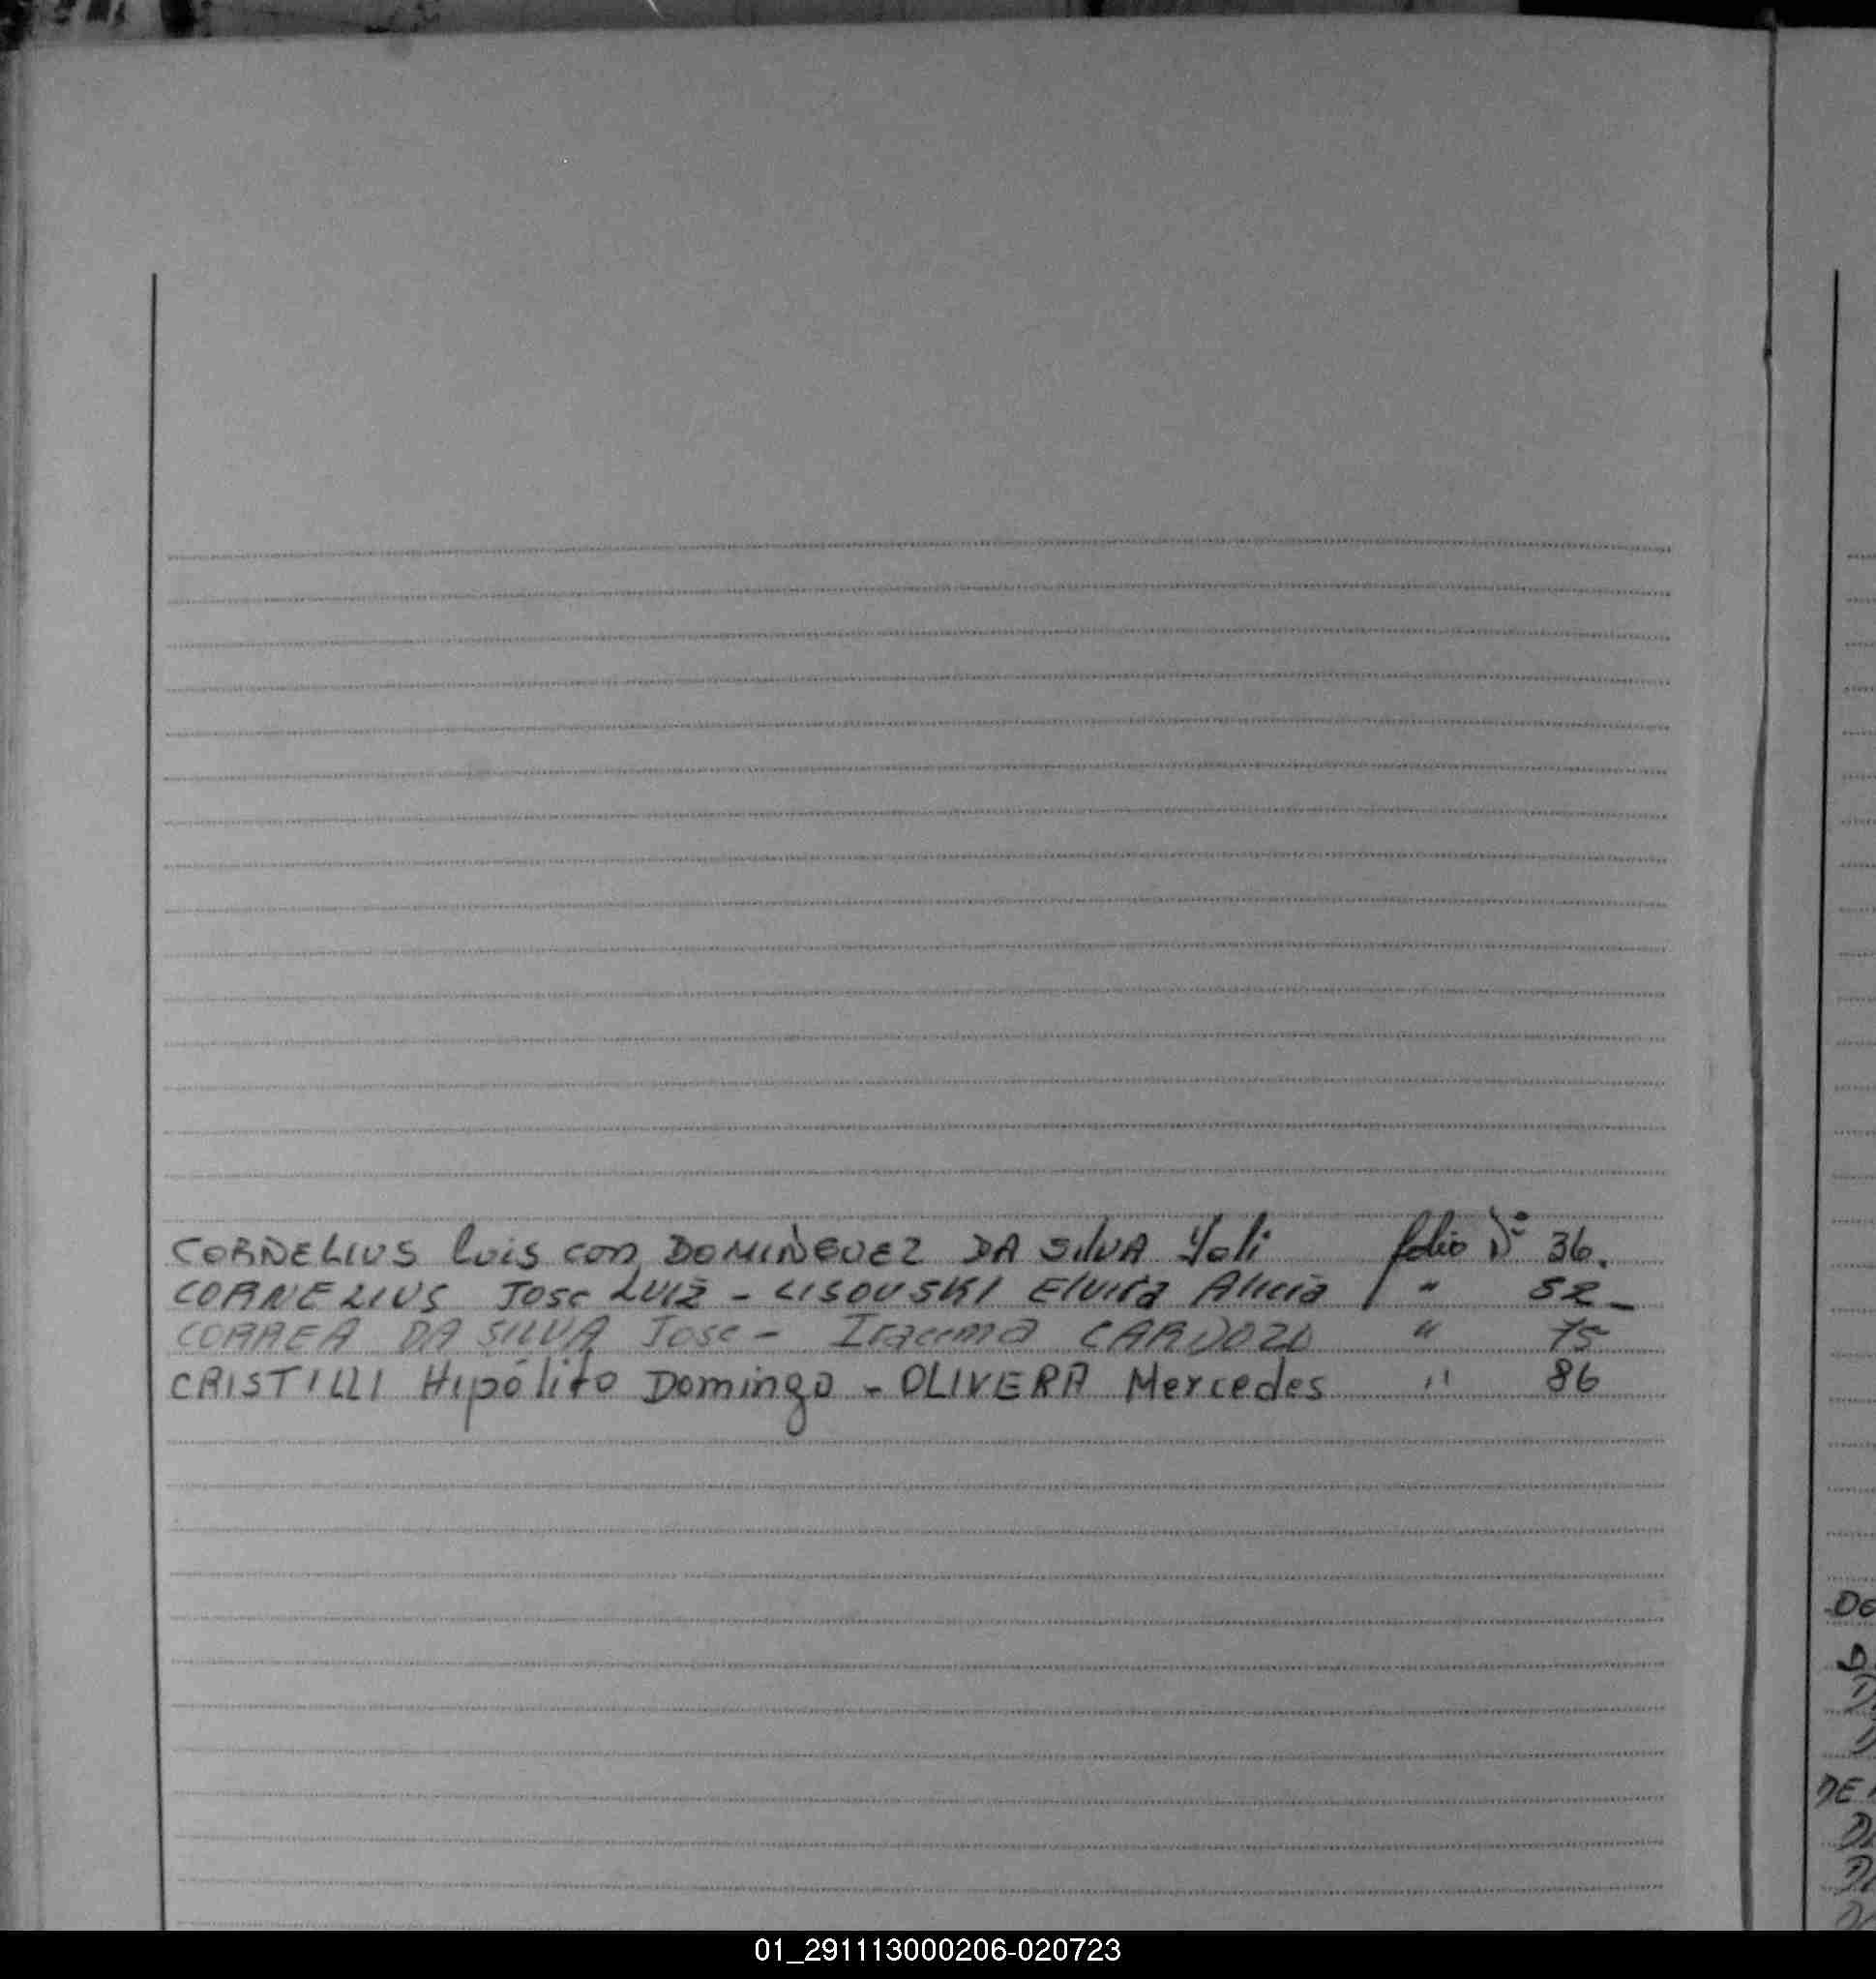 CORNELIUS Luis con DOMINGUEZ DA SILVA Yoli folio Nº 36.
CORNELIUS Jose LUIZ - LISOUSKI Elvira Alicia " 52 -
CORREA DA SILVA Jose - Iracema CARDOZO " 75
CRISTILLI Hipólito Domingo - OLIVERA Mercedes " 86
DE
01_291113000206-020723